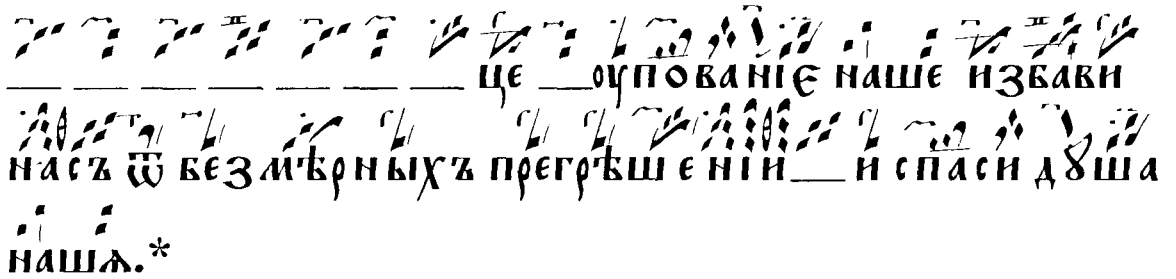 це оупованїе наше избави
насъ ѿ безмѣрныхъ прегрѣшенїи и спаси дꙋша
нашѧ.*